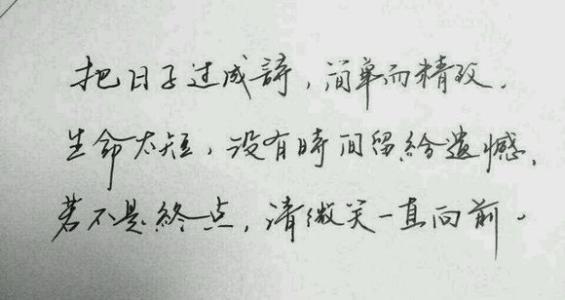 把日子过成詩，简单而精致．
生命太短，没有時间留给遗憾，
若不是终点，请微笑一直向前．